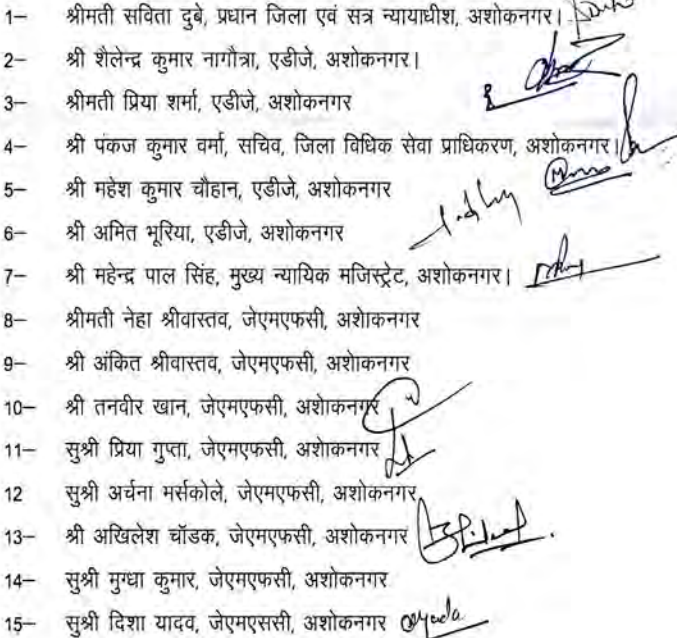 1– श्रीमती सविता दुबे, प्रधान जिला एवं सत्र न्यायाधीश, अशोकनगर।
2– श्री शैलेन्द्र कुमार नागौत्रा, एडीजे, अशोकनगर।
3– श्रीमती प्रिया शर्मा, एडीजे, अशोकनगर
4– श्री पंकज कुमार वर्मा, सचिव, जिला विधिक सेवा प्राधिकरण, अशोकनगर।
5– श्री महेश कुमार चौहान, एडीजे, अशोकनगर
6– श्री अमित भूरिया, एडीजे, अशोकनगर
7– श्री महेन्द्र पाल सिंह, मुख्य न्यायिक मजिस्ट्रेट, अशोकनगर।
8– श्रीमती नेहा श्रीवास्तव, जेएमएफसी, अशोकनगर
9– श्री अंकित श्रीवास्तव, जेएमएफसी, अशोकनगर
10– श्री तनवीर खान, जेएमएफसी, अशोकनगर
11– सुश्री प्रिया गुप्ता, जेएमएफसी, अशोकनगर
12 सुश्री अर्चना मर्सकोले, जेएमएफसी, अशोकनगर
13– श्री अखिलेश चॉडक, जेएमएफसी, अशोकनगर
14– सुश्री मुग्धा कुमार, जेएमएफसी, अशोकनगर
15– सुश्री दिशा यादव, जेएमएससी, अशोकनगर